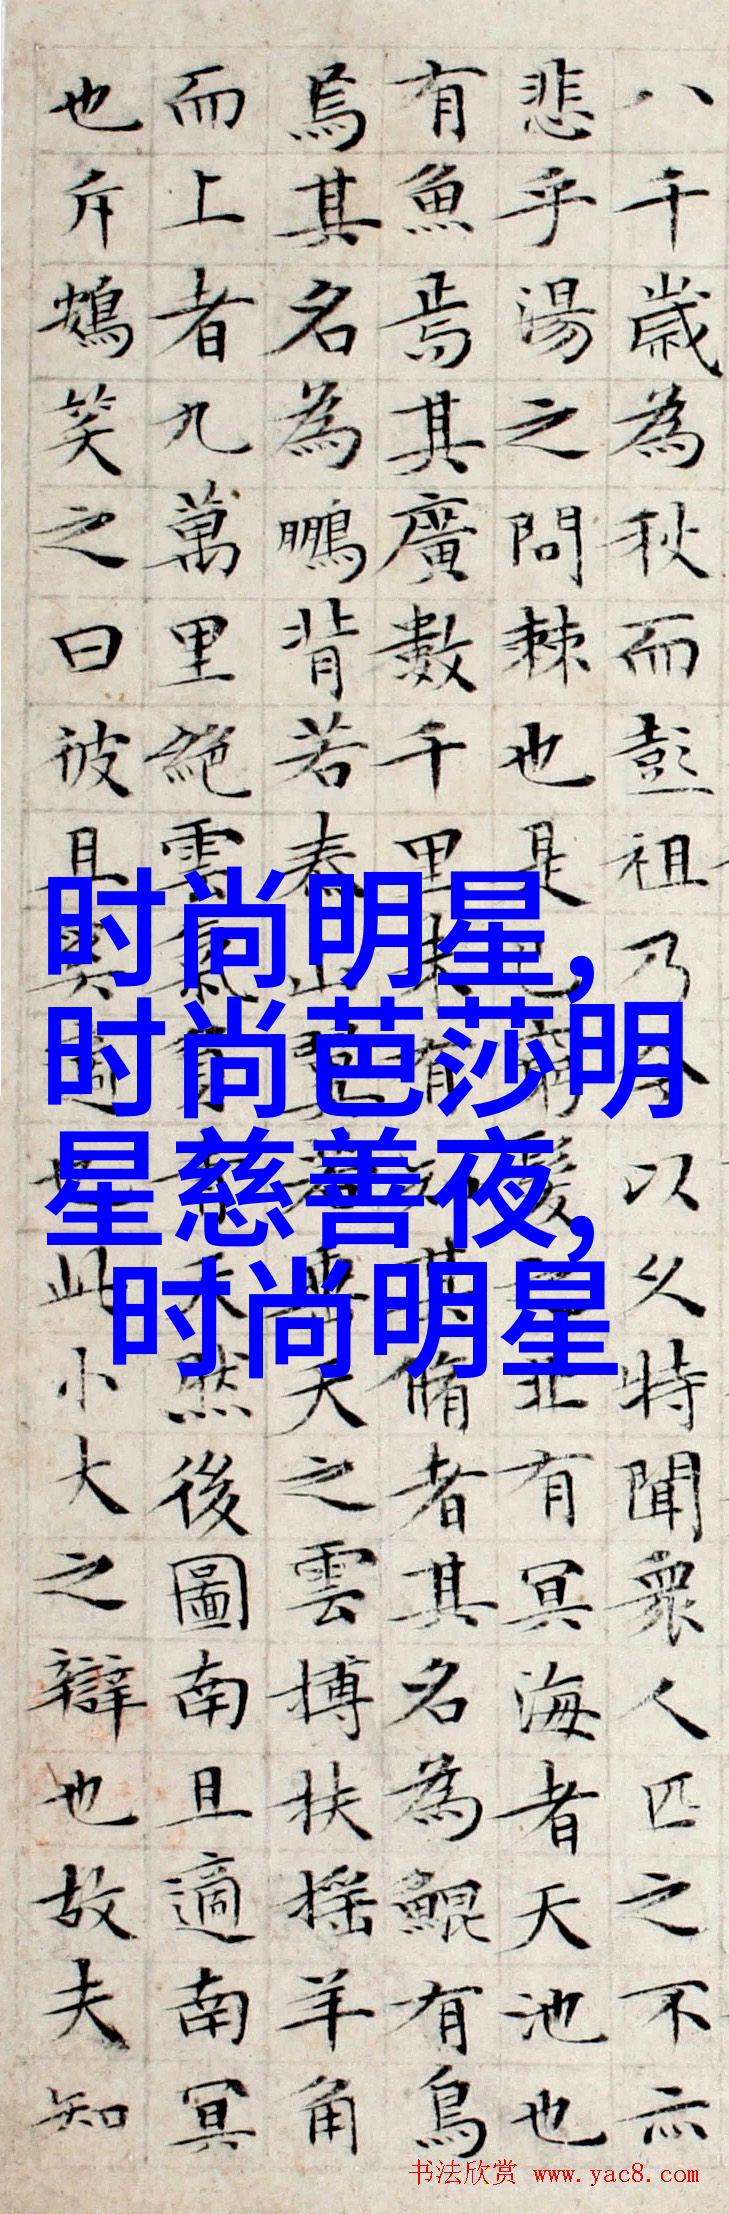 八千歲為秋而彭祖乃今以久特聞衆人匹之不亦
悲乎湯之問棘也是已窮髮之北有冥海者天池也
有魚焉其廣數千里未有知其脩者其名為鯤有鳥
焉其名為鵬背若泰山翼若垂天之雲搏扶搖羊角
而上者九萬里絕雲氣負青天然後圖南且適南冥
也斥鴳笑之曰彼且奚適也此小大之辯也故夫知
时尚明星,
时尚芭莎明
星慈善夜,
时尚明星
书法欣赏 www.yac8.com